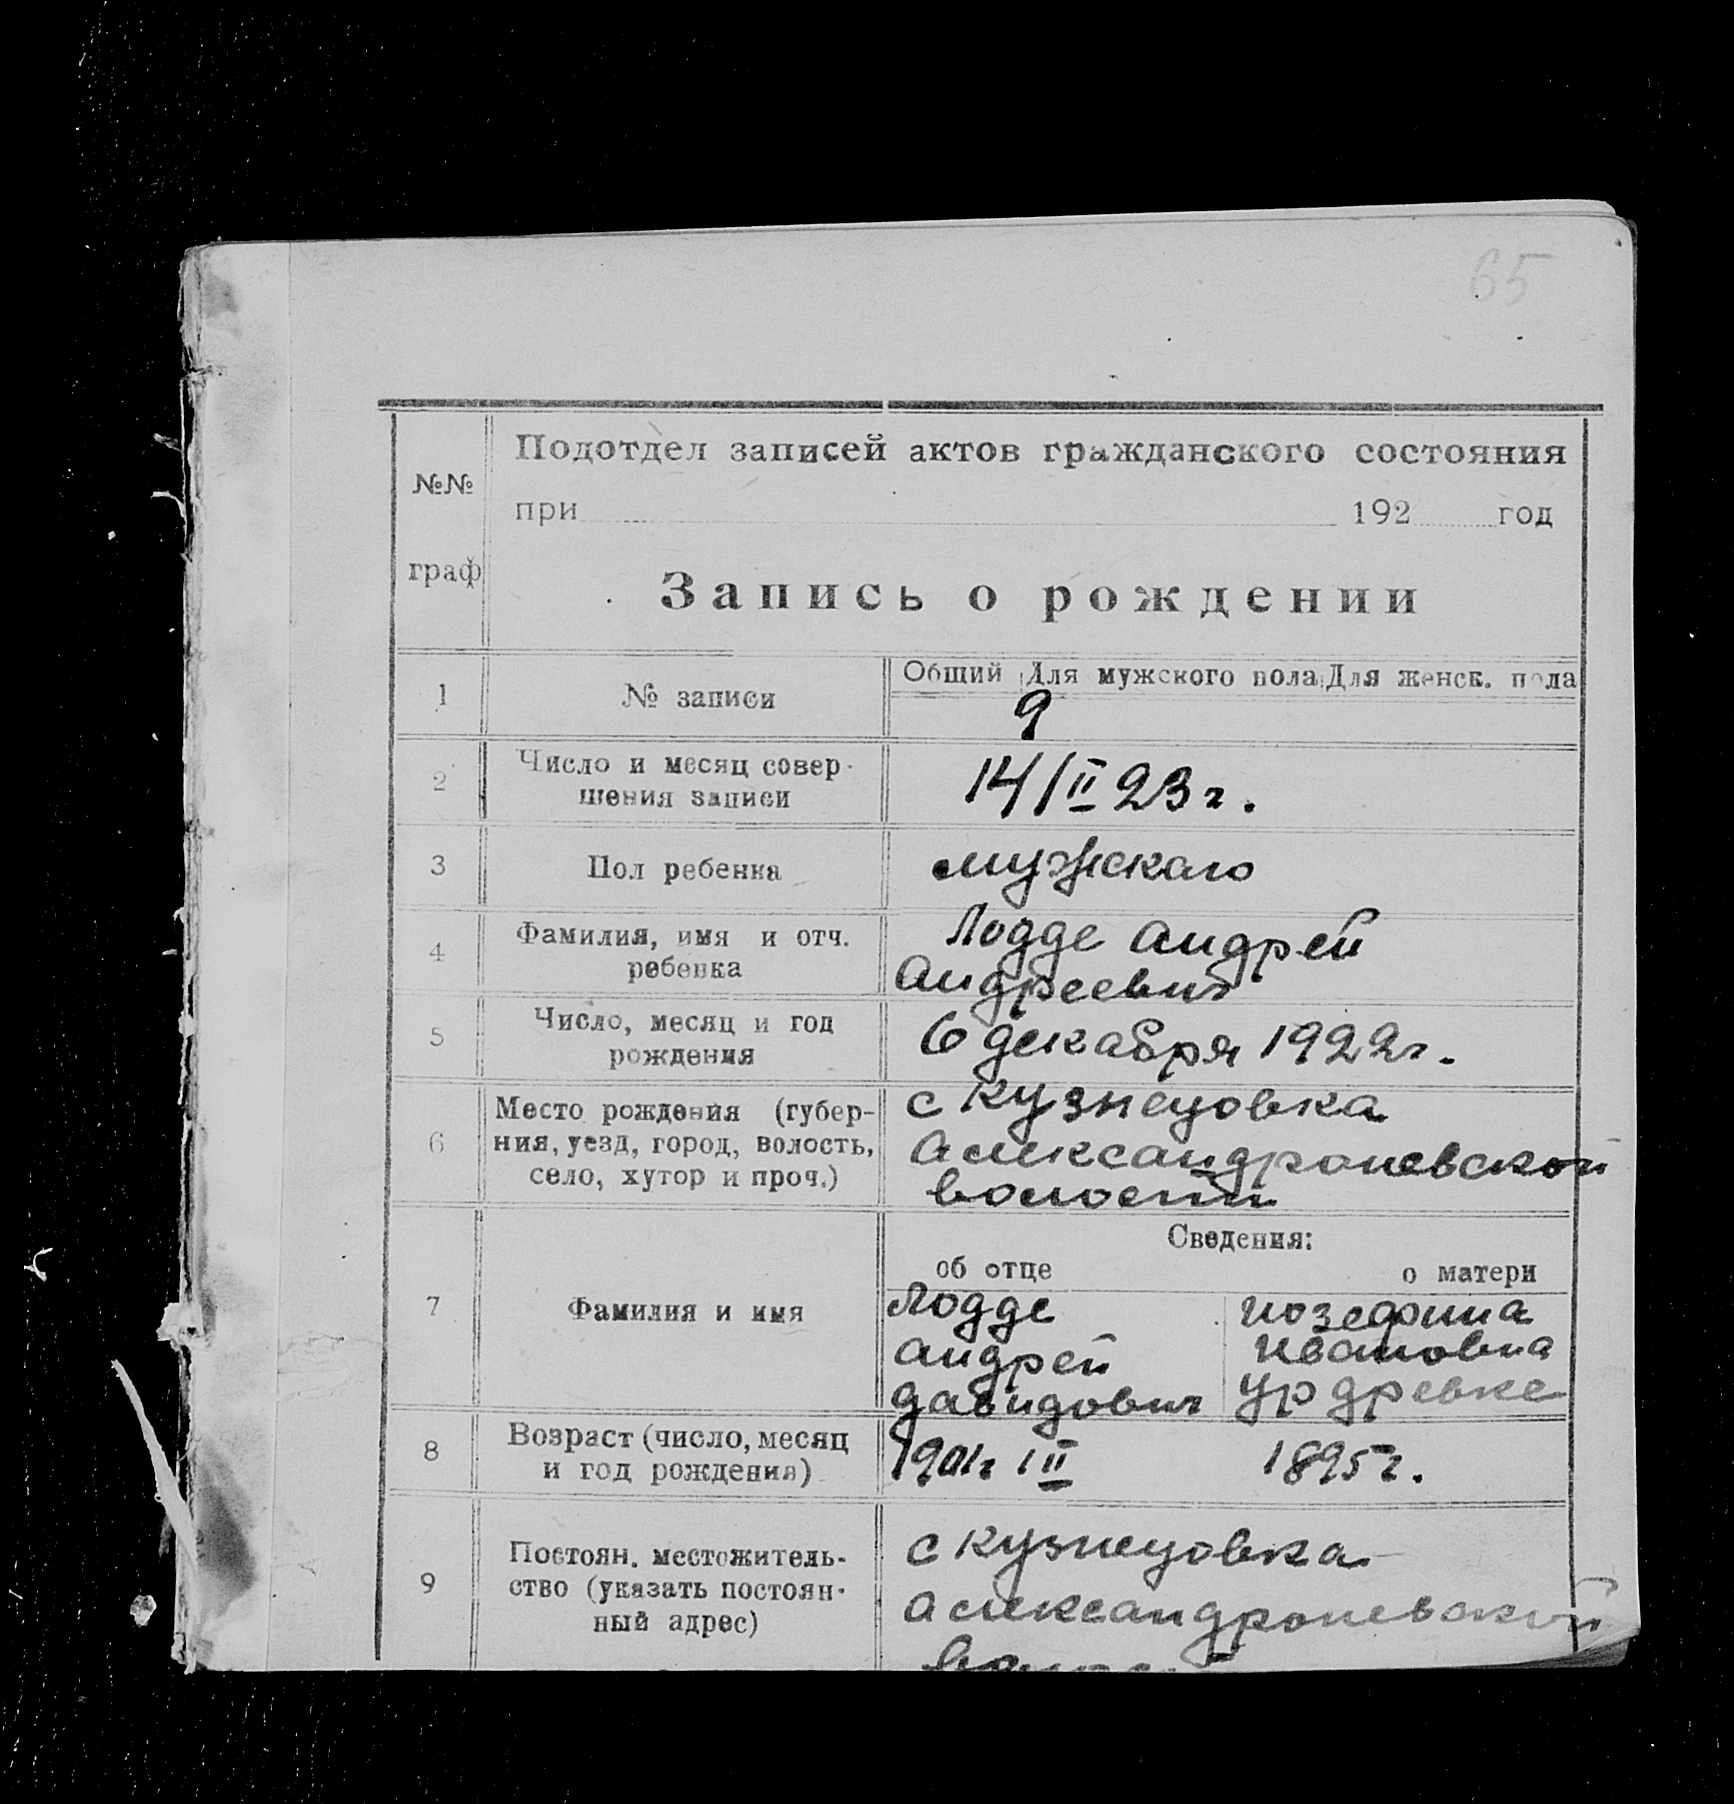 65
Подотдел записей актов гражданского состояния
№№
при 192 год
граф
Запись о рождении
Общий Для мужского пола Для женск. пола
1 № записи 9
2 Число и месяц совер-
шения записи 14/II 23 г.
3 Пол ребенка мужскаго
4 Фамилия, имя и отч. Лодде Андрей
ребенка Андреевич
5 Число, месяц и год
рождения 6 декабря 1922 г.
6 Место рождения (губер- с Кузнецовка
ния, уезд, город, волость, Александроневской
село, хутор и проч.) волости
Сведения:
об отце о матери
7 Фамилия и имя Лодде Иозефина
Андрей Ивановна
Давидович
8 Возраст (число, месяц
и год рождения) 1901 г 1 II 1895 г.
9 Постоян. местожитель- с Кузнецовка
ство (указать постоян- Александроневской
ный адрес)